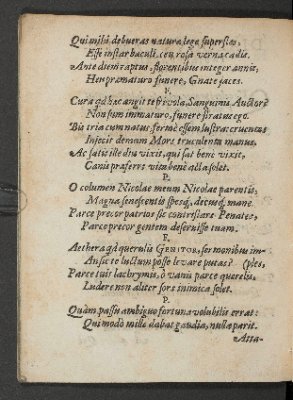 Qui mihi debueras naturæ lege superstes,
Esse instar baculi, ceu rosa verna cadis.
Ante diem raptus, florentibus integer annis,
Heu præmaturo funere, Gnate jaces.
F.
Cura quid hæc angit te frivola, Sanguinis Auctor?
Non sum immaturo funere stratus ego.
Bis tria cum natus fermè essem lustra cruentas
Injecit demum Mors truculenta manus.
Ac satis ille diu vixit, qui sat benè vixit,
Canis præferri vita benè acta solet.
P.
O columen Nicolae meum Nicolae parentis,
Magna senescentis spesq, decusq, mane.
Parce precor patrios sic contristare Penates,
Parce precor gentem deseruisse tuam.
F.
Aethera quid querulis GENITOR, sermonibus im-
An sic te luctum posse levare putas? (ples,
Parce tuis lachrymis, ô vanis parce querelis,
Ludere non aliter sors inimica solet.
P.
Quàm passu ambiguo fortuna volubilis errat:
Qui modò mille dabat gaudia, nulla parit.
Atta-